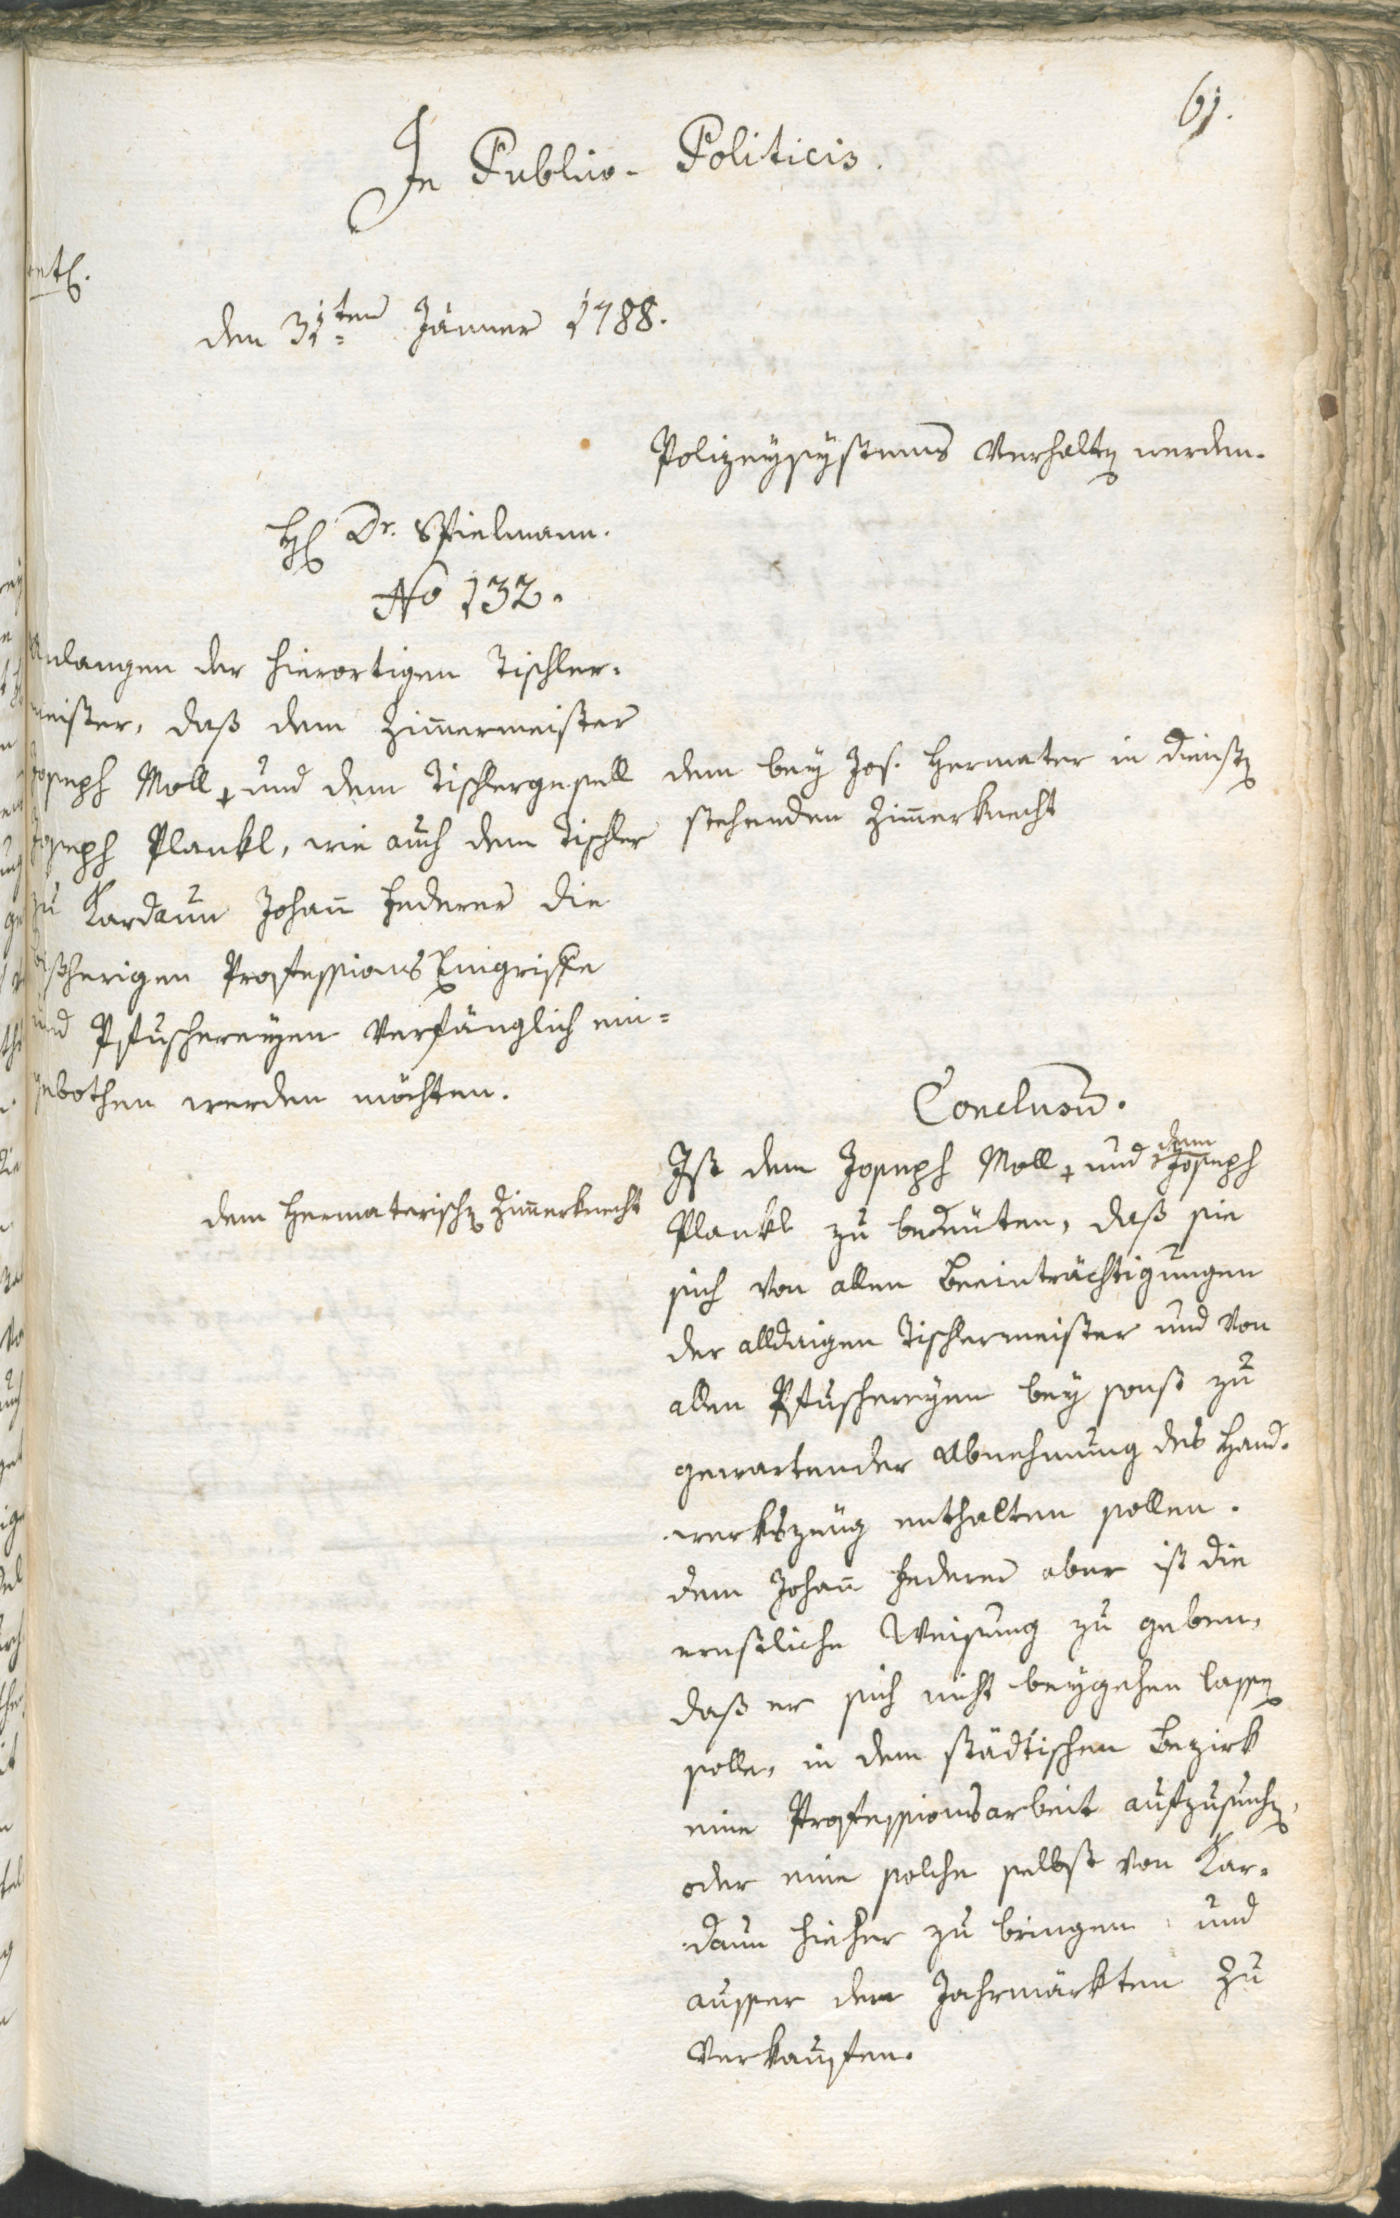 61.
In Publico-Politicis.
den 31ten Jänner 1788.
Polizeysystems verhalten werden.
H Dr. Spielmann.
No 132.
Anlangen der hierortigen Tischler-
meister, daß dem Zimmermeister
Joseph Moll + und dem Tischlergesell
Joseph Plankl, wie auch dem Tischler
zu Kardaun Johann Federer die
bißherigen Professions Eingriffe
und Pfuschereyen verfänglich ein=
gebothen werden möchten.
dem bey Jos. Hermater in Diensten
stehenden Zimmerknecht
dem Hermaterischen Zimmerknecht
Conclusum.
Ist dem Joseph Moll + und dem Joseph
Plankl zu bedeuten, daß sie
sich von allen Beeinträchtigungen
der alldaigen Tischlermeister und von
allen Pfuschereyen bey sonst zu
gewartender Abnehmung des Hand-
werkszeug enthalten sollen.
dem Johann Federer aber ist die
ernstliche Weisung zu geben,
daß er sich nicht beygehen lassen
solle, in dem städtischen Bezirk
eine Professionsarbeit aufzusuchen,
oder eine solche selbst von Kar-
daun hieher zu bringen und
ausser den Jahrmärkten zu
verkaufen.